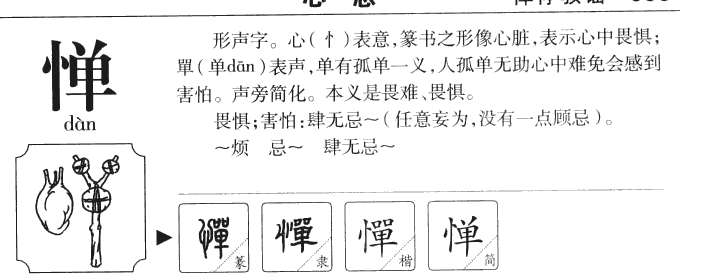 惮
dàn
形声字。心(忄)表意,篆书之形像心脏,表示心中畏惧;
單(单dān)表声,单有孤单一义,人孤单无助心中难免会感到
害怕。声旁简化。本义是畏难、畏惧。
畏惧;害怕:肆无忌～(任意妄为,没有一点顾忌)。
～烦 忌～ 肆无忌～
憚 篆
憚 隶
憚 楷
惮 简